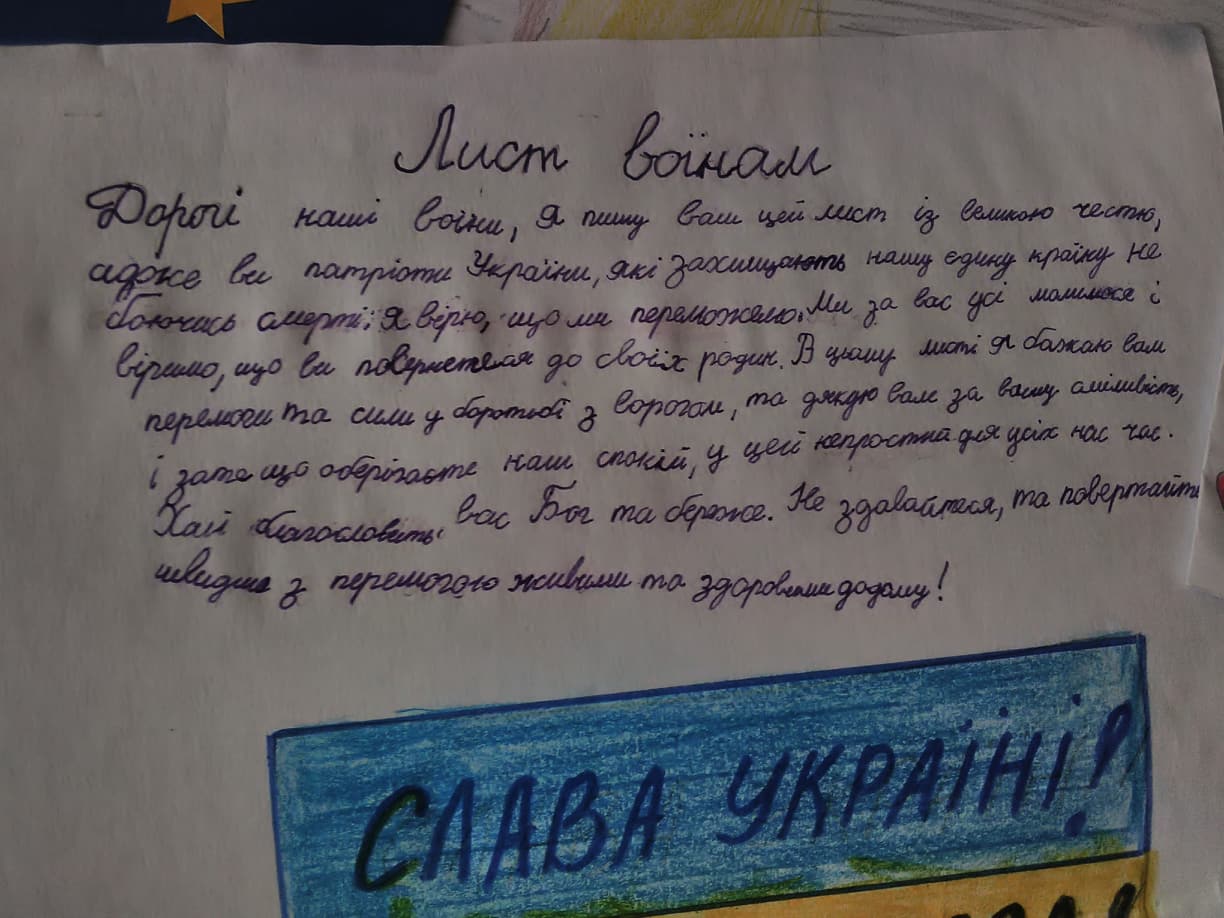 Лист воїнам
Дорогі наші воїни, я пишу вам цей лист із великою честю,
адже ви патріоти України, які захищають нашу єдину країну не
боючись смерті. Я вірю, що ми переможемо. Ми за вас усі молимося і
віримо, що ви повернетеся до своїх родин. В цьому листі я бажаю вам
перемоги та сили у боротьбі з ворогом, та дякую вам за вашу сміливість,
і за те що оберігаєте наш спокій, у цей непростий для усіх нас час.
Хай благословить вас Бог та береже. Не здавайтеся, та повертайте
швидше з перемогою живими та здоровими додому!
СЛАВА УКРАЇНІ!